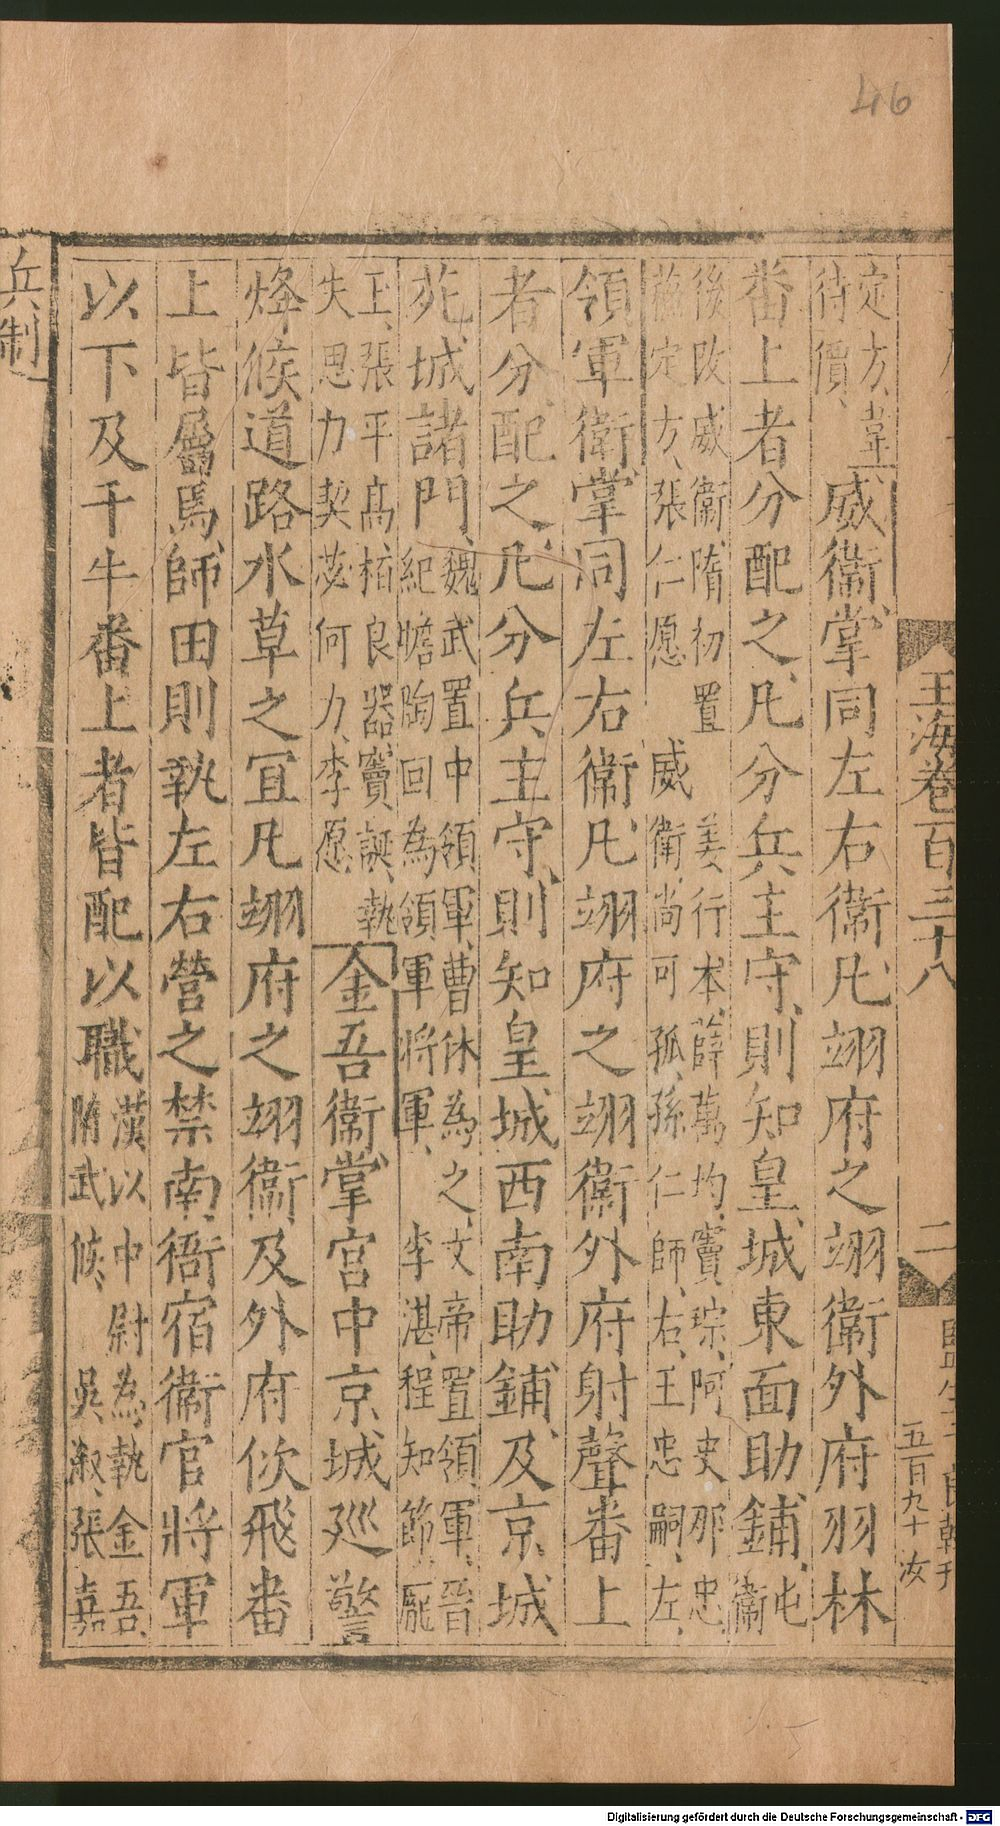 46
定方、韋
待價、
威衞掌同左右衞凡翊府之翊衞外府羽林
番上者分配之凡分兵主守則知皇城東面助鋪屯
衞
後改威衞隋初置 姜行本薛萬均竇琮阿史那忠
蘇定方、張仁愿 威衞尚可孤孫仁師、右王忠嗣、左
領軍衛掌同左右衞凡翊府之翊衞外府射聲番上
者分配之凡分兵主守則知皇城西南助鋪及京城
苑城諸門魏武置中領軍曹休為之文帝置領軍晉
紀瞻陶回為領軍將軍、李湛程知節、龐
玉張平高栢良器竇誕執
失思力契苾何力李愿 金吾衞掌宮中京城廵警
烽候道路水草之宜凡翊府之翊衞及外府佽飛番
上皆屬焉師田則執左右營之禁南衙宿衞官將軍
以下及千牛番上者皆配以職漢以中尉為執金吾
隋武候、吳淑張嘉
兵制
玉海卷百三十八
二
五百九十 汝
Digitalisierung gefördert durch die Deutsche Forschungsgemeinschaft - DFG